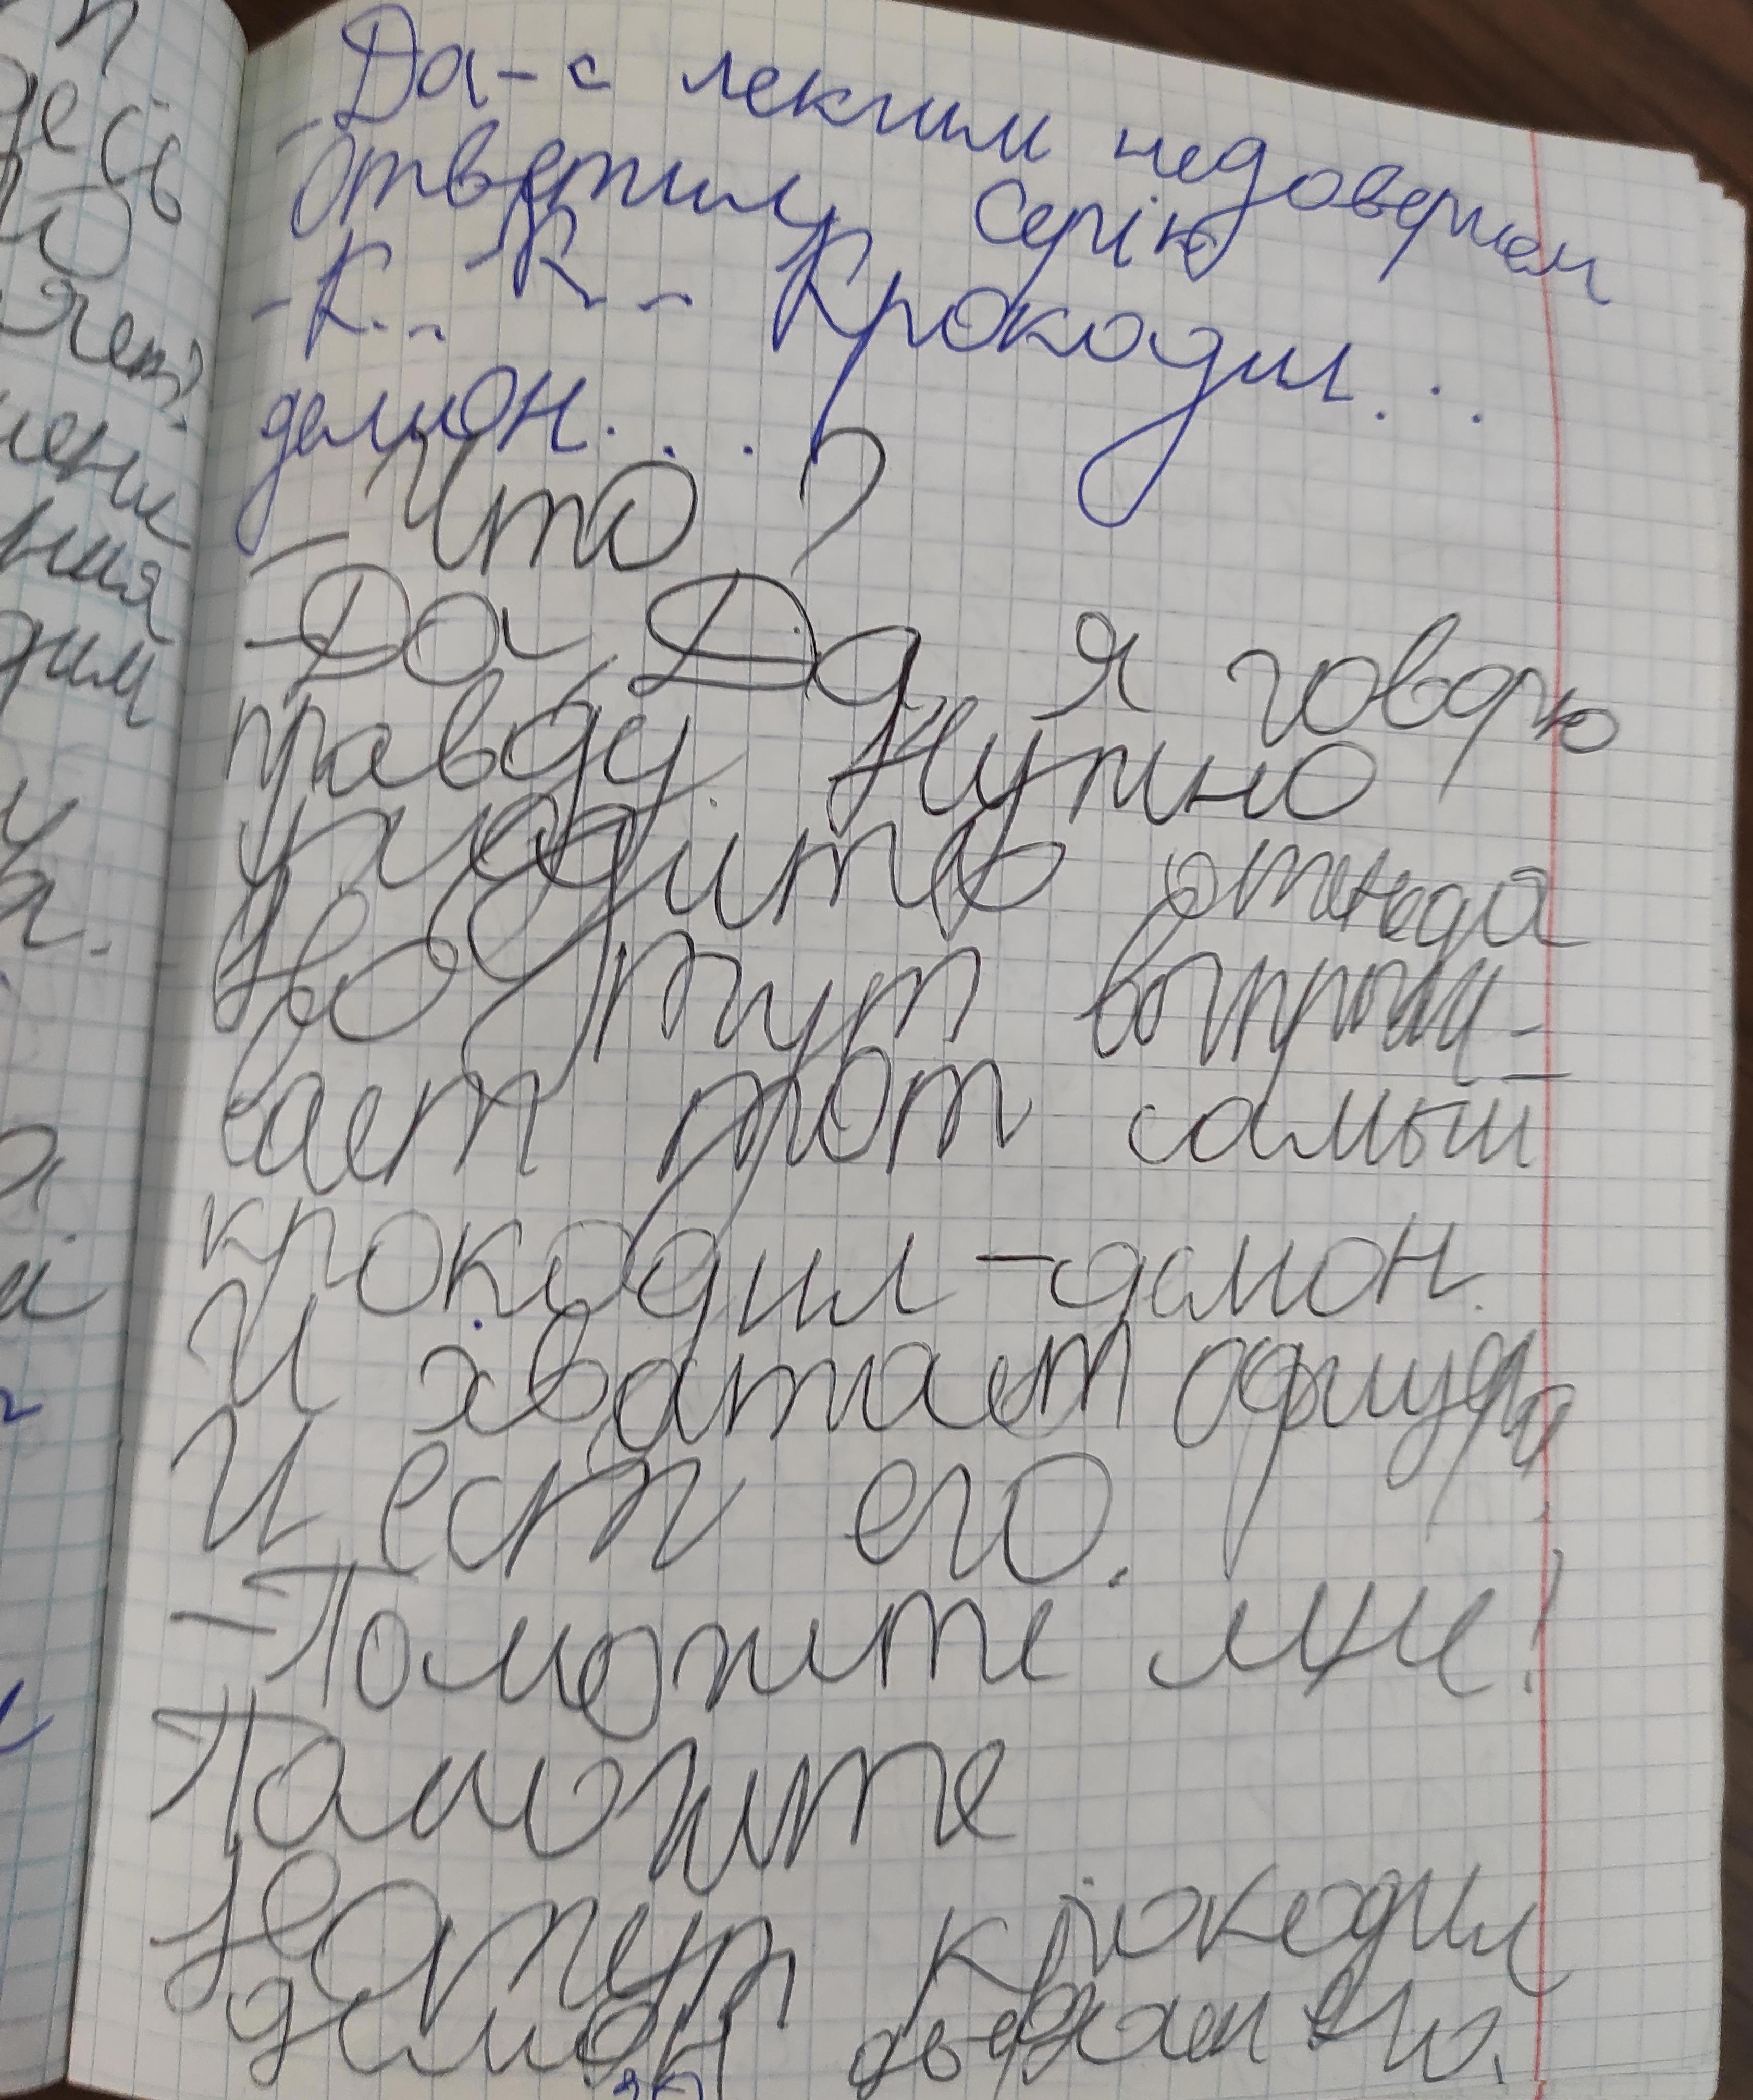 - Да - с лекгим недоверием
ответил Сергію
- К... К... Крокодил...
демон...
- Что?
- Да Да я говорю
правду. Нужно
уходить отсюда
Но тут выпрыги-
вает тот самый
крокодил - демон.
И хватает
И ест его.
- Поможите мне!
Поможите
Но тут крокодил
демон его.